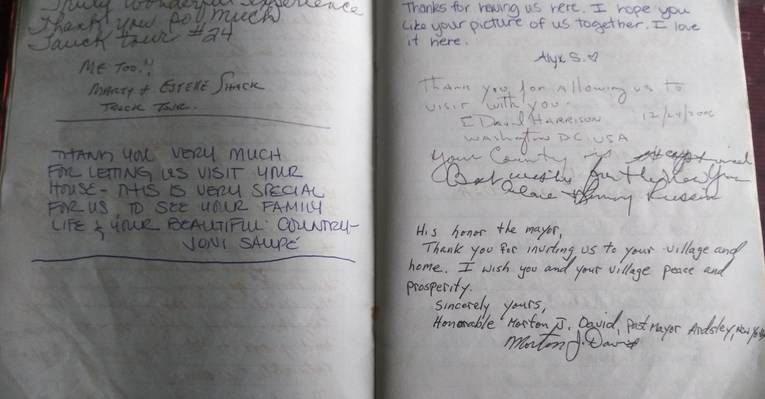 Truly Wonderful experience
Thank you so much
Tauck Tour #24
ME TOO!!
MARTY & ESTELLE SHACK
TAUCK TOUR
THANK YOU VERY MUCH
FOR LETTING US VISIT YOUR
HOUSE - THIS IS VERY SPECIAL
FOR US TO SEE YOUR FAMILY
LIFE & YOUR BEAUTIFUL COUNTRY-
JONI SAUPÉ
Thanks for having us here. I hope you
like your picture of us together. I love
it here.
Alyx S. ♡
Thank you for allowing us to
visit with you.
E David HARRISON 12/24/
WASHINGTON DC. USA
Your Country is
Best wishes for the New Year
His honor the mayor,
Thank you for inviting us to your village and
home. I wish you and your village peace and
prosperity.
Sincerely yours,
Honorable Morton J. David, Past Mayor Ardsley, New York
Morton J. David